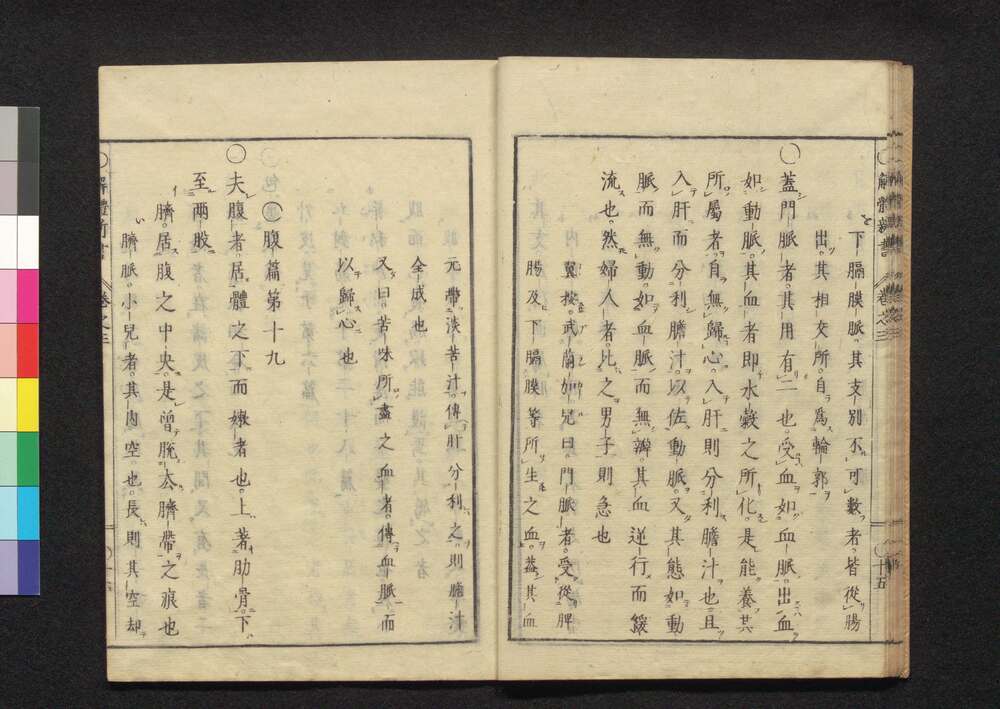 解體新書 卷之三 ○十五
下膈膜脈其支別不可數者皆從腸
出其相交所自為輪郭
○蓋門脈者其用有二也受血如血脈出血
如動脈其血者即水穀之所化是能養其
所屬者自無歸心入肝則分利膽汁也且
入肝而分利膽汁以佐動脈又其態如動
脈而無動如血脈而無辨其血逆行而緩
流也然婦人者比之男子則急也
翼按武蘭加兒曰門脈者受從脾
腸及下膈膜等所生之血蓋其血
元帶淡苦汁傳肝分利之則膽汁
全成也
又曰苦味所盡之血者傳血脈而
以歸心也
○腹篇第十九
○夫腹者居體之下而嫩者也上著肋骨下
至兩股
臍居腹之中央是曾脫去臍帶之痕也
臍脈小兒者其内空也長則其空却
解體新書 卷之三